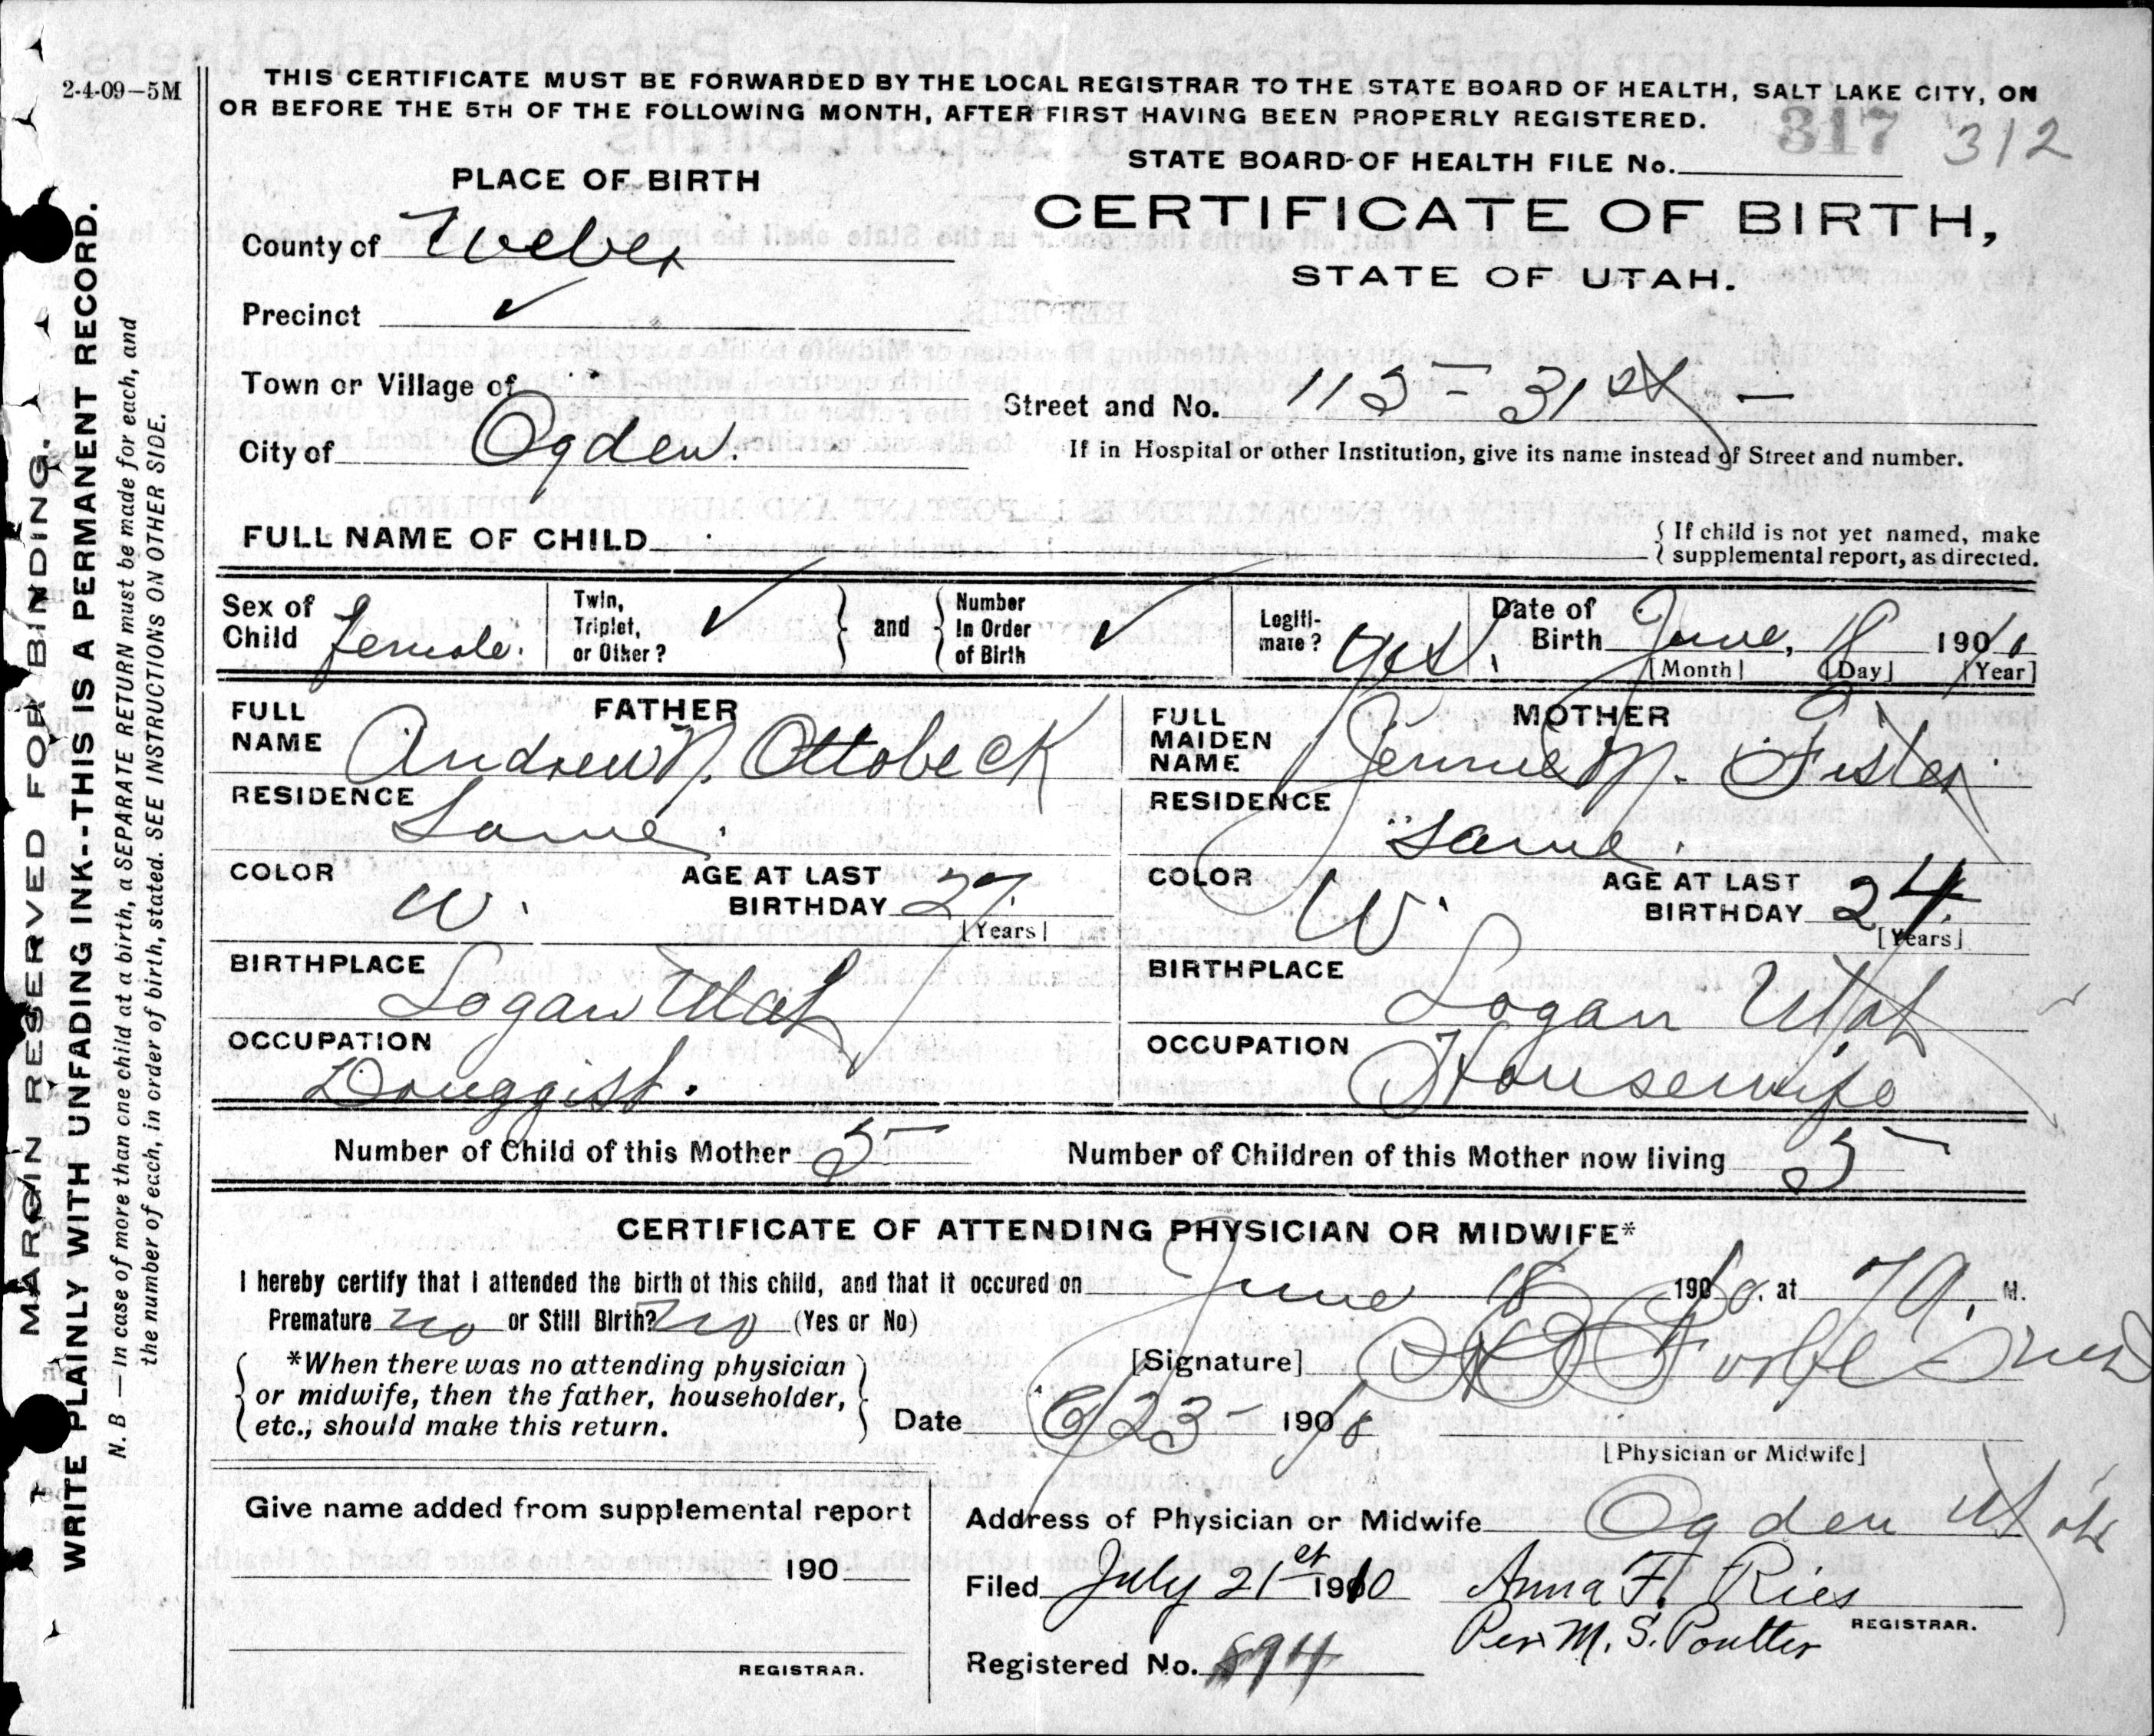 2-4-09-5M
THIS CERTIFICATE MUST BE FORWARDED BY THE LOCAL REGISTRAR TO THE STATE BOARD OF HEALTH, SALT LAKE CITY, ON
OR BEFORE THE 5TH OF THE FOLLOWING MONTH, AFTER FIRST HAVING BEEN PROPERLY REGISTERED.
317 312
STATE BOARD OF HEALTH FILE No.
PLACE OF BIRTH
CERTIFICATE OF BIRTH,
STATE OF UTAH.
County of Weber
Precinct ✓
Town or Village of
Street and No. 115 - 31 st -
City of Ogden.
If in Hospital or other Institution, give its name instead of Street and number.
FULL NAME OF CHILD
{ If child is not yet named, make
supplemental report, as directed.
Sex of Child female.
Twin, Triplet, or Other? ✓
} and {
Number In Order of Birth ✓
Legiti-mate? yes.
Date of Birth June, 18 1910
[Month] [Day] [Year]
FATHER
FULL NAME Andrew N. Ottobeck
RESIDENCE Same.
COLOR W.
AGE AT LAST BIRTHDAY 27.
[Years]
BIRTHPLACE Logan Utah
OCCUPATION Druggist.
MOTHER
FULL MAIDEN NAME Jennie M.
RESIDENCE Same.
COLOR W.
AGE AT LAST BIRTHDAY 24.
[Years]
BIRTHPLACE Logan Utah
OCCUPATION Housewife
Number of Child of this Mother 5
Number of Children of this Mother now living 5
CERTIFICATE OF ATTENDING PHYSICIAN OR MIDWIFE*
I hereby certify that I attended the birth of this child, and that it occured on June 18 1910. at 7 A. M.
Premature no or Still Birth? no (Yes or No)
*When there was no attending physician
or midwife, then the father, householder,
etc., should make this return.
[Signature]
Date 6/23- 1910
[Physician or Midwife]
Give name added from supplemental report
190
REGISTRAR.
Address of Physician or Midwife Ogden Utah
Filed July 21st 1910 Anna F. Ries
Per M. S. Poulter REGISTRAR.
Registered No. 894
MARGIN RESERVED FOR BINDING.
WRITE PLAINLY WITH UNFADING INK--THIS IS A PERMANENT RECORD.
N. B — In case of more than one child at a birth, a SEPARATE RETURN must be made for each, and
the number of each, in order of birth, stated. SEE INSTRUCTIONS ON OTHER SIDE.